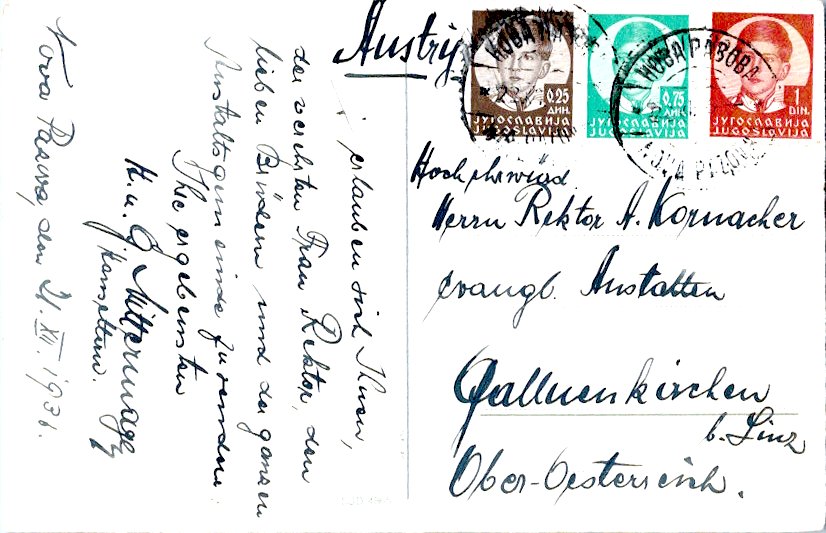 Austrij
НОВА ПАЗОВА
NOVA PAZOVA
0.25
ДИН.
ЈУГОСЛАВИЈА
JUGOSLAVIJA
0.75
ДИН.
ЈУГОСЛАВИЈА
JUGOSLAVIJA
1
DIN.
ЈУГОСЛАВИЈА
JUGOSLAVIJA
Hochehrwürd
Herrn Rektor A. Kornacher
evangl. Anstalten
Gallneukirchen
b. Linz
Ober-Oesterreich.
erlauben sich Ihnen,
der verehrten Frau Rektor, den
lieben Brüdern und der ganzen
Anstaltsgemeinde zu senden
Ihre ergebensten
H. u. G. Mittermayer
Nova Pazova, den 21. XII. 1931.